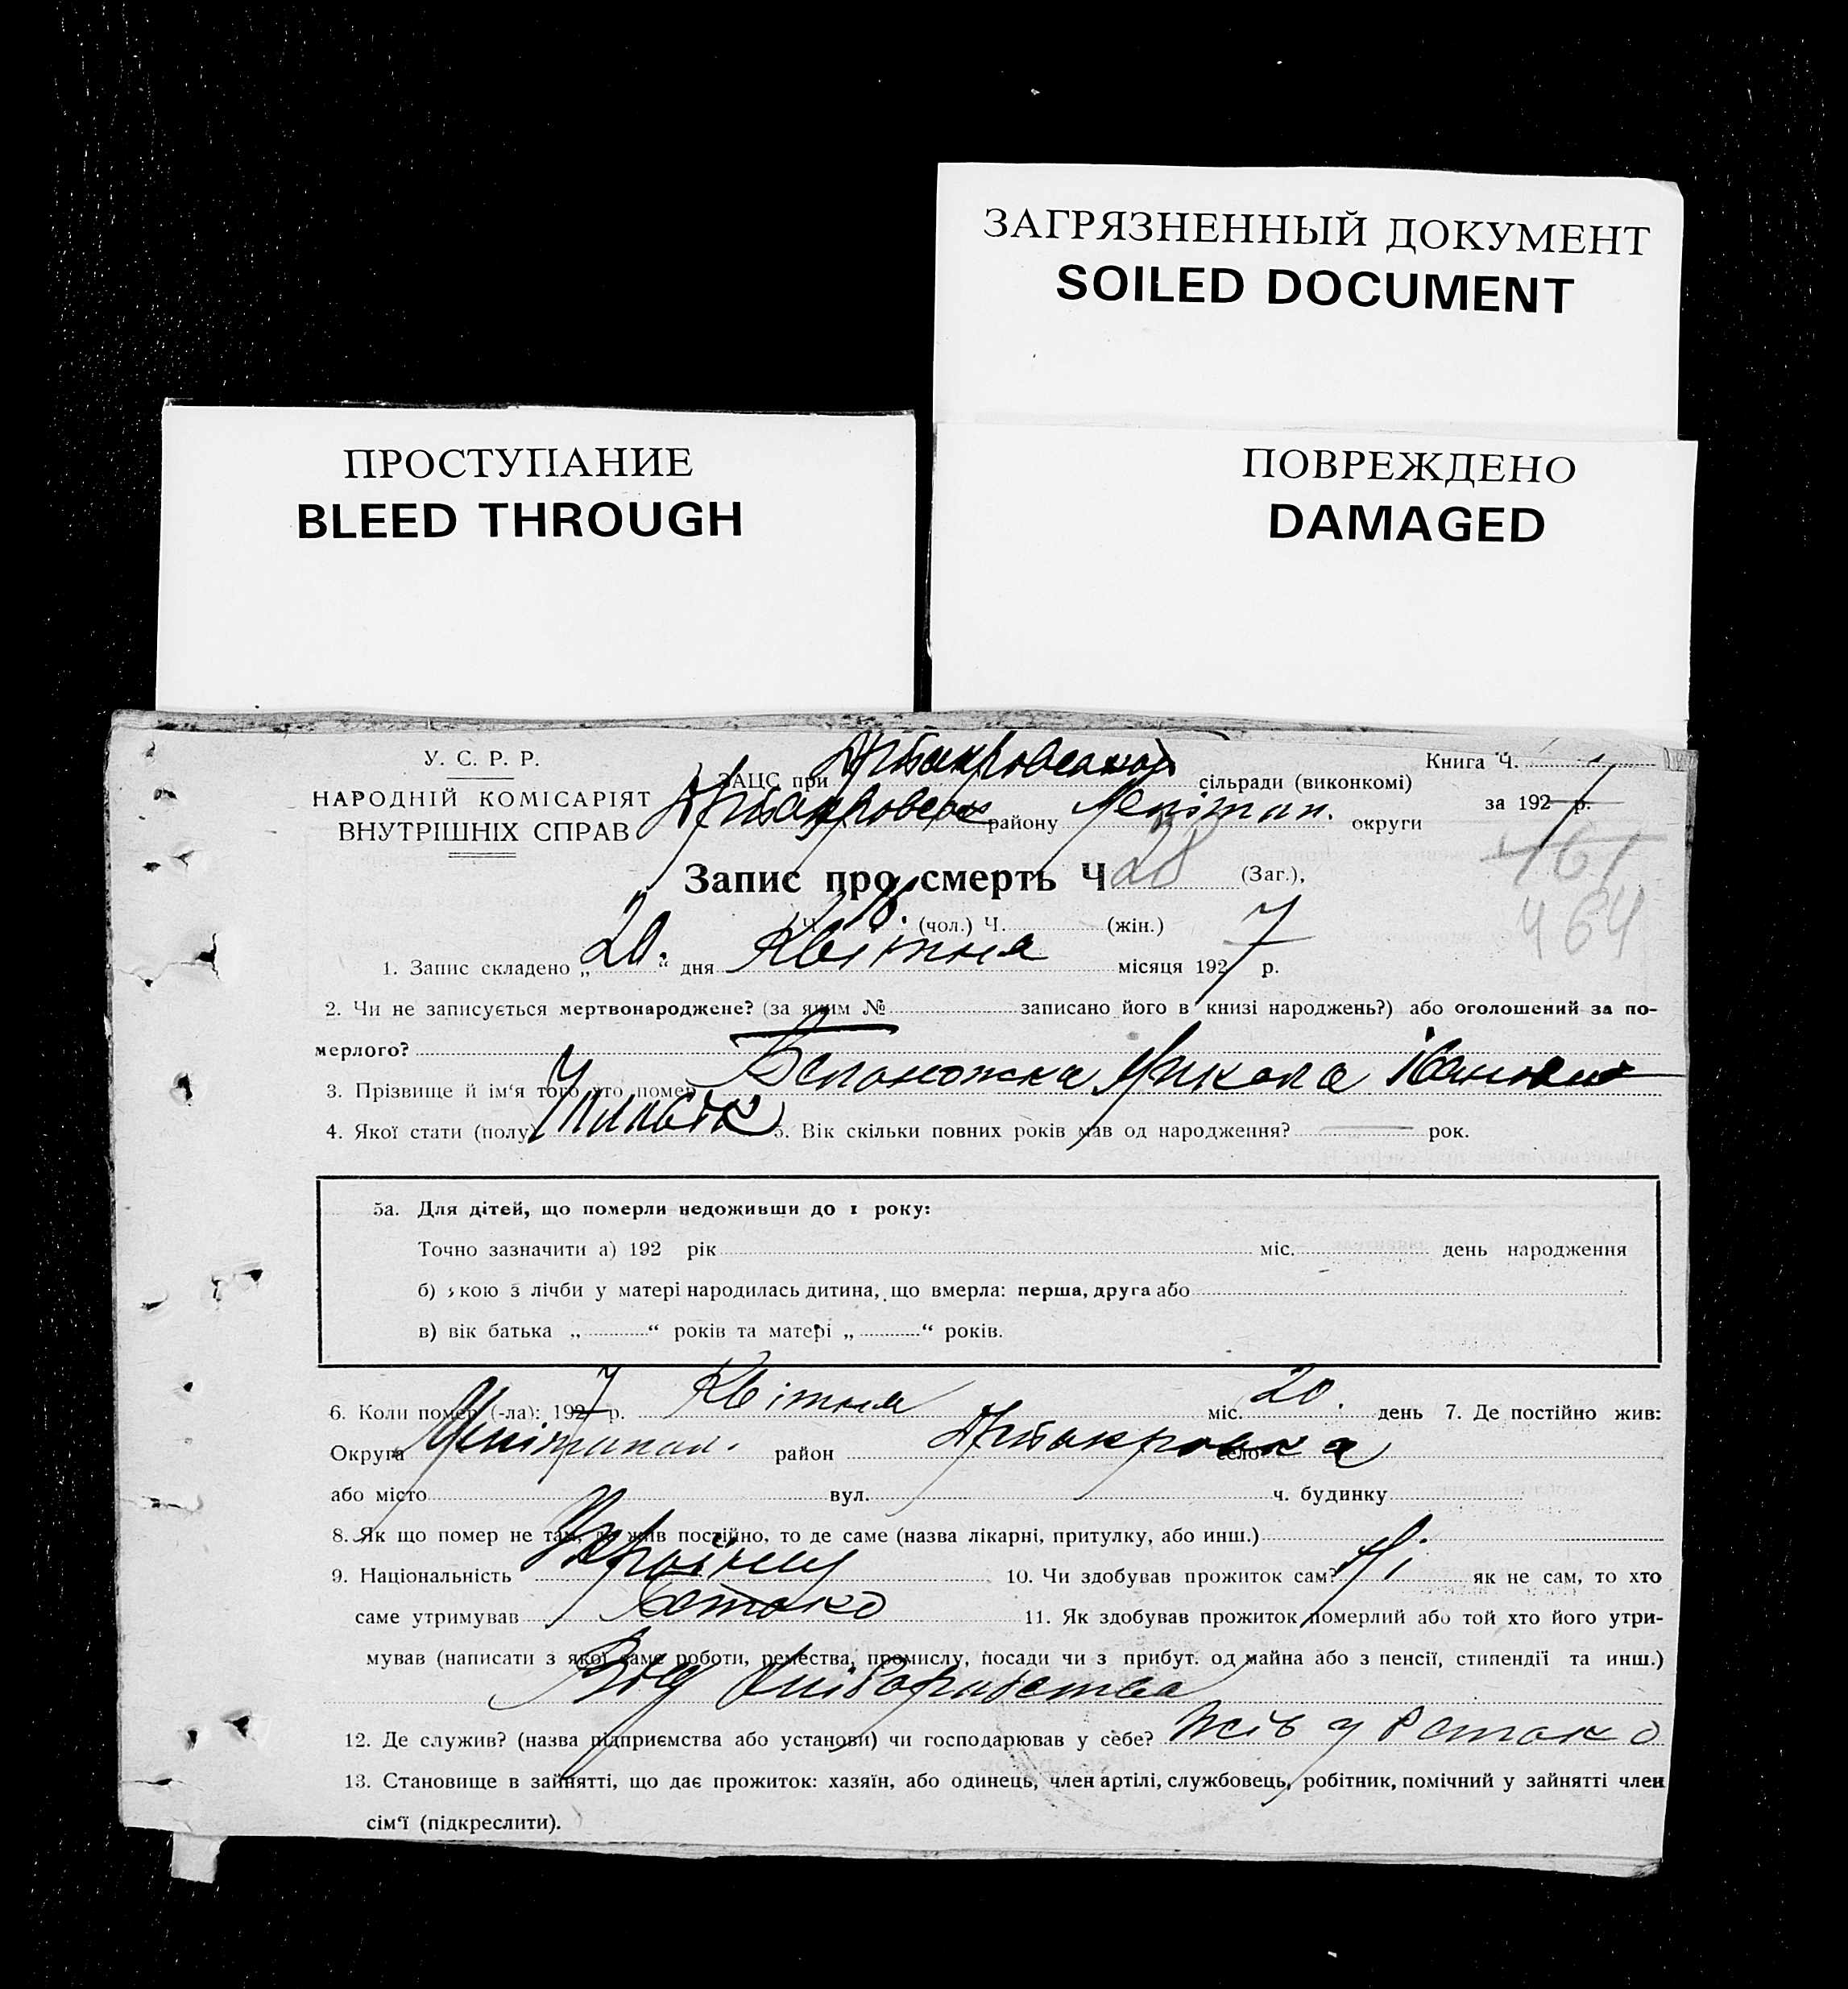 ЗАГРЯЗНЕННЫЙ ДОКУМЕНТ
SOILED DOCUMENT
ПРОСТУПАНИЕ
BLEED THROUGH
ПОВРЕЖДЕНО
DAMAGED
У. С. Р. Р.
НАРОДНІЙ КОМІСАРІЯТ
ВНУТРІШНІХ СПРАВ
ЗАЦС при сільради (виконкомі)
району Мелітоп. округи
Книга Ч.
за 1927 р.
461
464
Запис про смерть Ч 28 (Заг.),
Ч. 16. (чол.) Ч. (жін.)
1. Запис складено „20.“ дня Квітня місяця 1927 р.
2. Чи не записується мертвонароджене? (за яким № записано його в книзі народжень?) або оголошений за по-
мерлого?
3. Прізвище й ім'я того хто помер Белоножка Микола Іванович
4. Якої стати (полу) Чиловік 5. Вік скільки повних років мав од народження? — рок.
5а. Для дітей, що померли недоживши до 1 року:
Точно зазначити а) 192 рік міс. день народження
б) якою з лічби у матері народилась дитина, що вмерла: перша, друга або
в) вік батька „ “ років та матері „ “ років.
6. Коли помер (-ла): 1927 р. Квітня міс. 20. день 7. Де постійно жив:
Округа район село
або місто вул. ч. будинку
8. Як що помер не там, де жив постійно, то де саме (назва лікарні, притулку, або инш.)
9. Національність Україн 10. Чи здобував прожиток сам? Ні як не сам, то хто
саме утримував Батько 11. Як здобував прожиток померлий або той хто його утри-
мував (написати з якої саме роботи, ремества, промислу, посади чи з прибут. од майна або з пенсії, стипендії та инш.)
Від хліборобства
12. Де служив? (назва підприємства або установи) чи господарював у себе? Жів у Батько
13. Становище в зайнятті, що дає прожиток: хазяїн, або одинець, член артілі, службовець, робітник, помічний у зайнятті член
сім'ї (підкреслити).